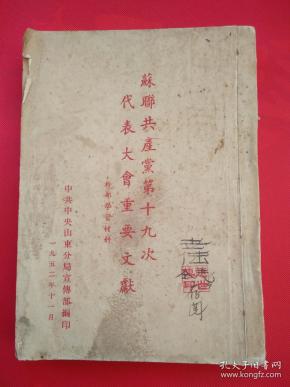 蘇聯共產黨第十九次
代表大會重要文獻
幹部學習材料
中共中央山東分局宣傳部編印
一九五二年十一月
孔夫子旧书网